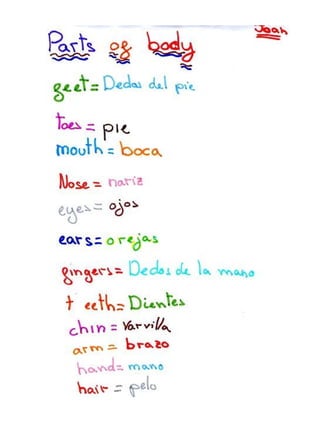 Joan
Parts of body
feet = Dedos del pie
toes = pie
mouth = boca
Nose = nariz
eyes = ojos
ears = orejas
fingers = Dedos de la mano
teeth = Dientes
chin = varvilla
arm = brazo
hand = mano
hair = pelo